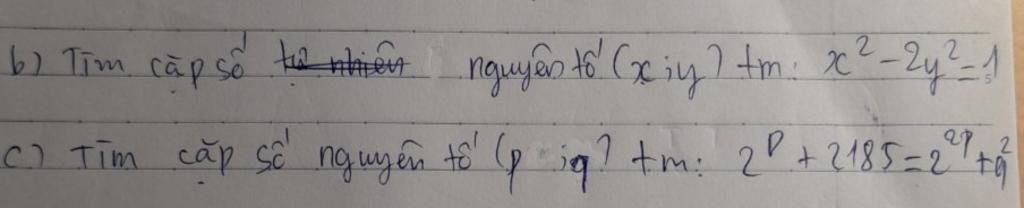 b) Tìm cặp số nguyên tố (x;y) tm: x² - 2y² = 1
c) Tìm cặp số nguyên tố (p;q) tm: 2^p + 2185 = 2^2p + q²